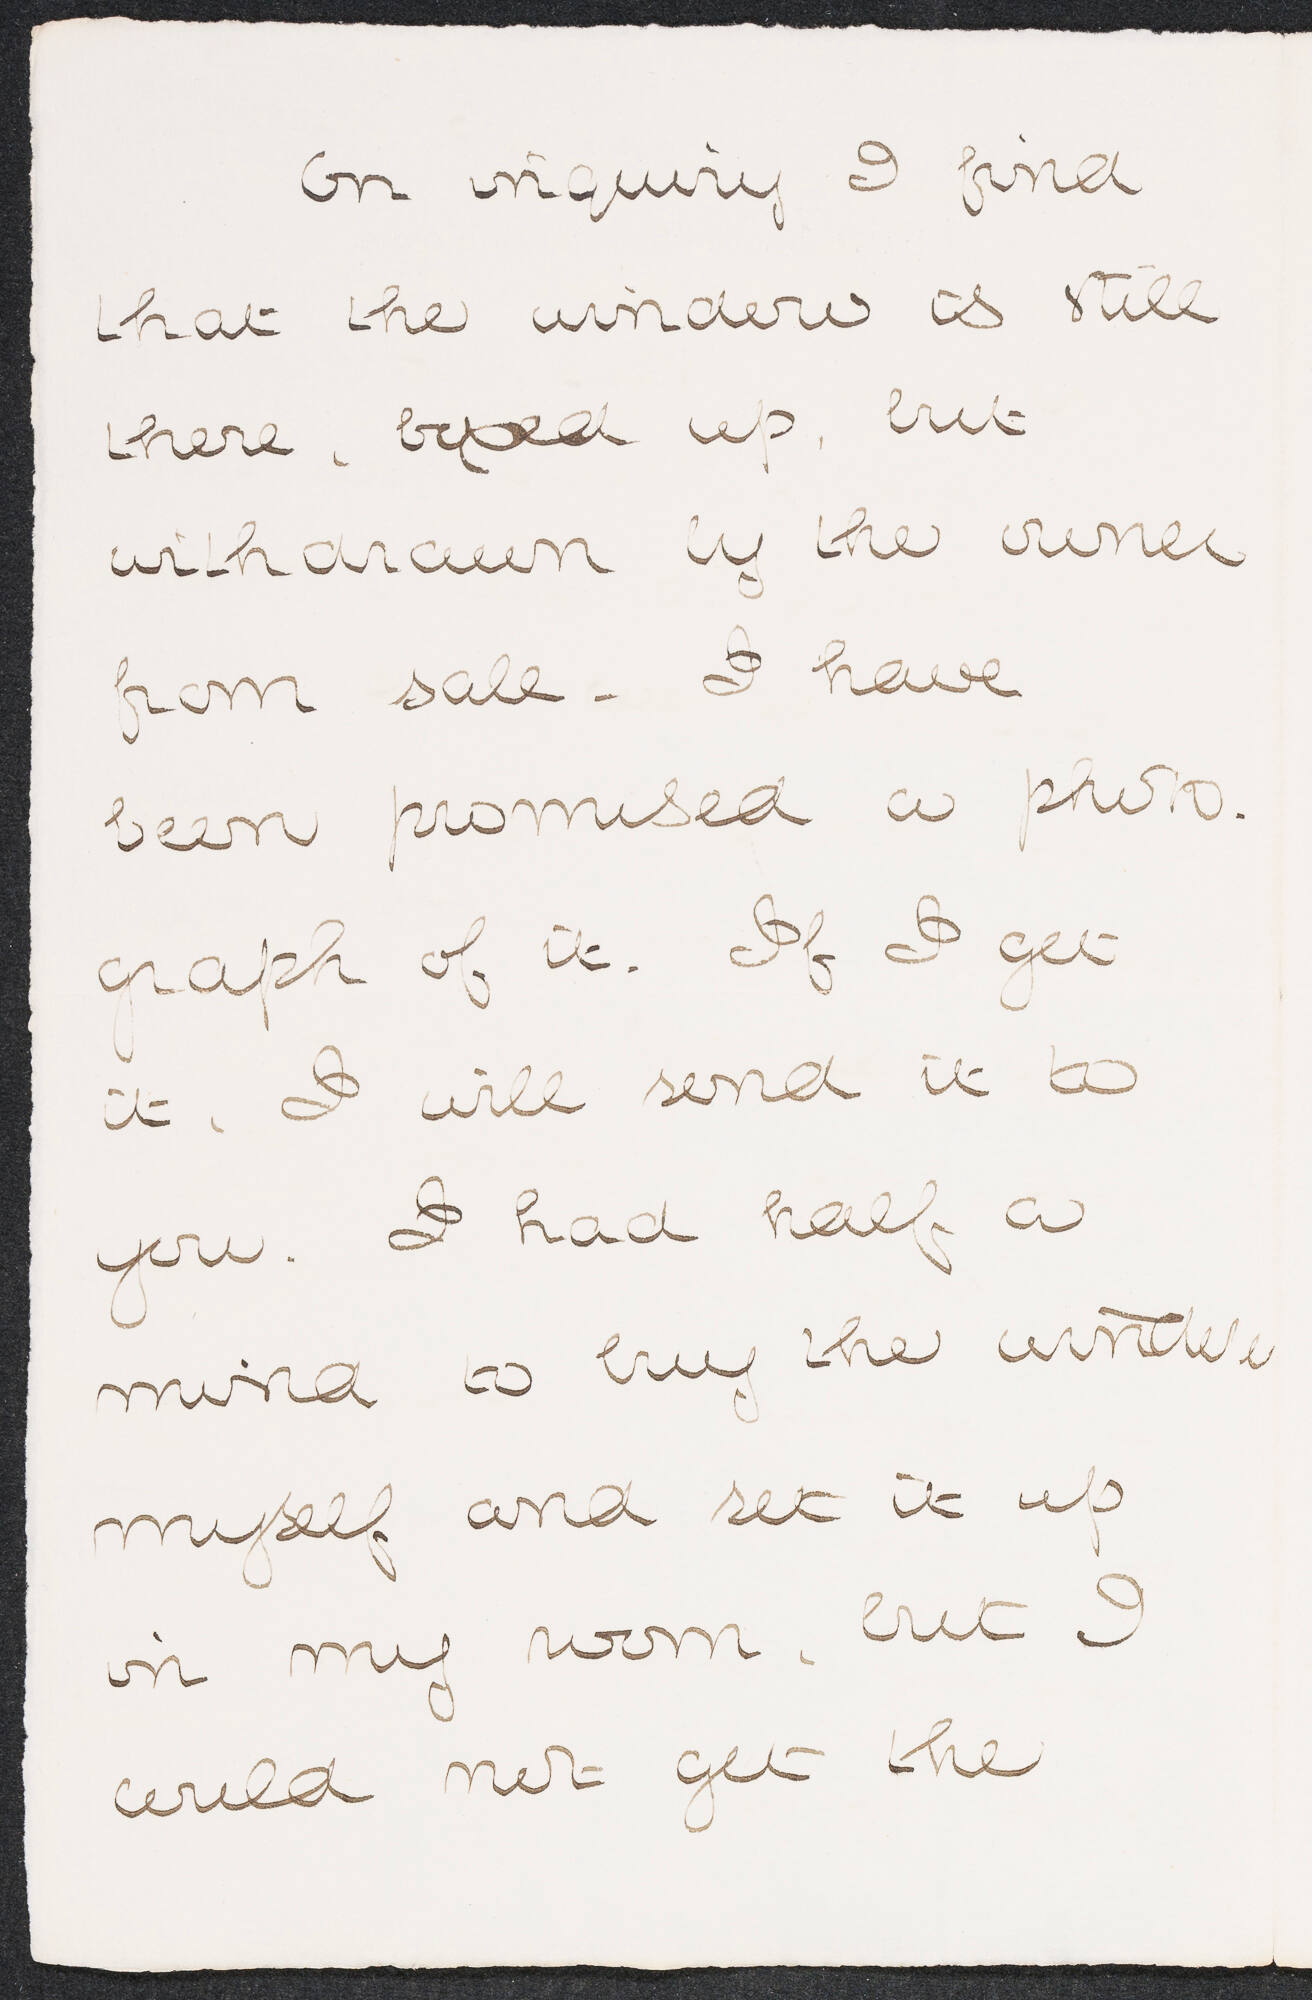 On inquiry I find
that the window is still
there, boxed up, but
withdrawn by the owner
from sale - I have
been promised a photo-
graph of it. If I get
it, I will send it to
you. I had half a
mind to buy the window
myself and set it up
in my room, but I
could not get the